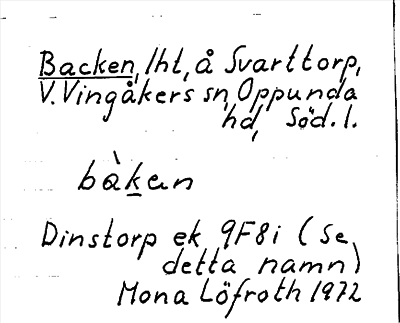 Backen, lht, å Svarttorp,
V. Vingåkers sn, Oppunda
hd, Söd. l.
bàkan
Dinstorp ek 9F8i (Se
detta namn)
Mona Löfroth 1972